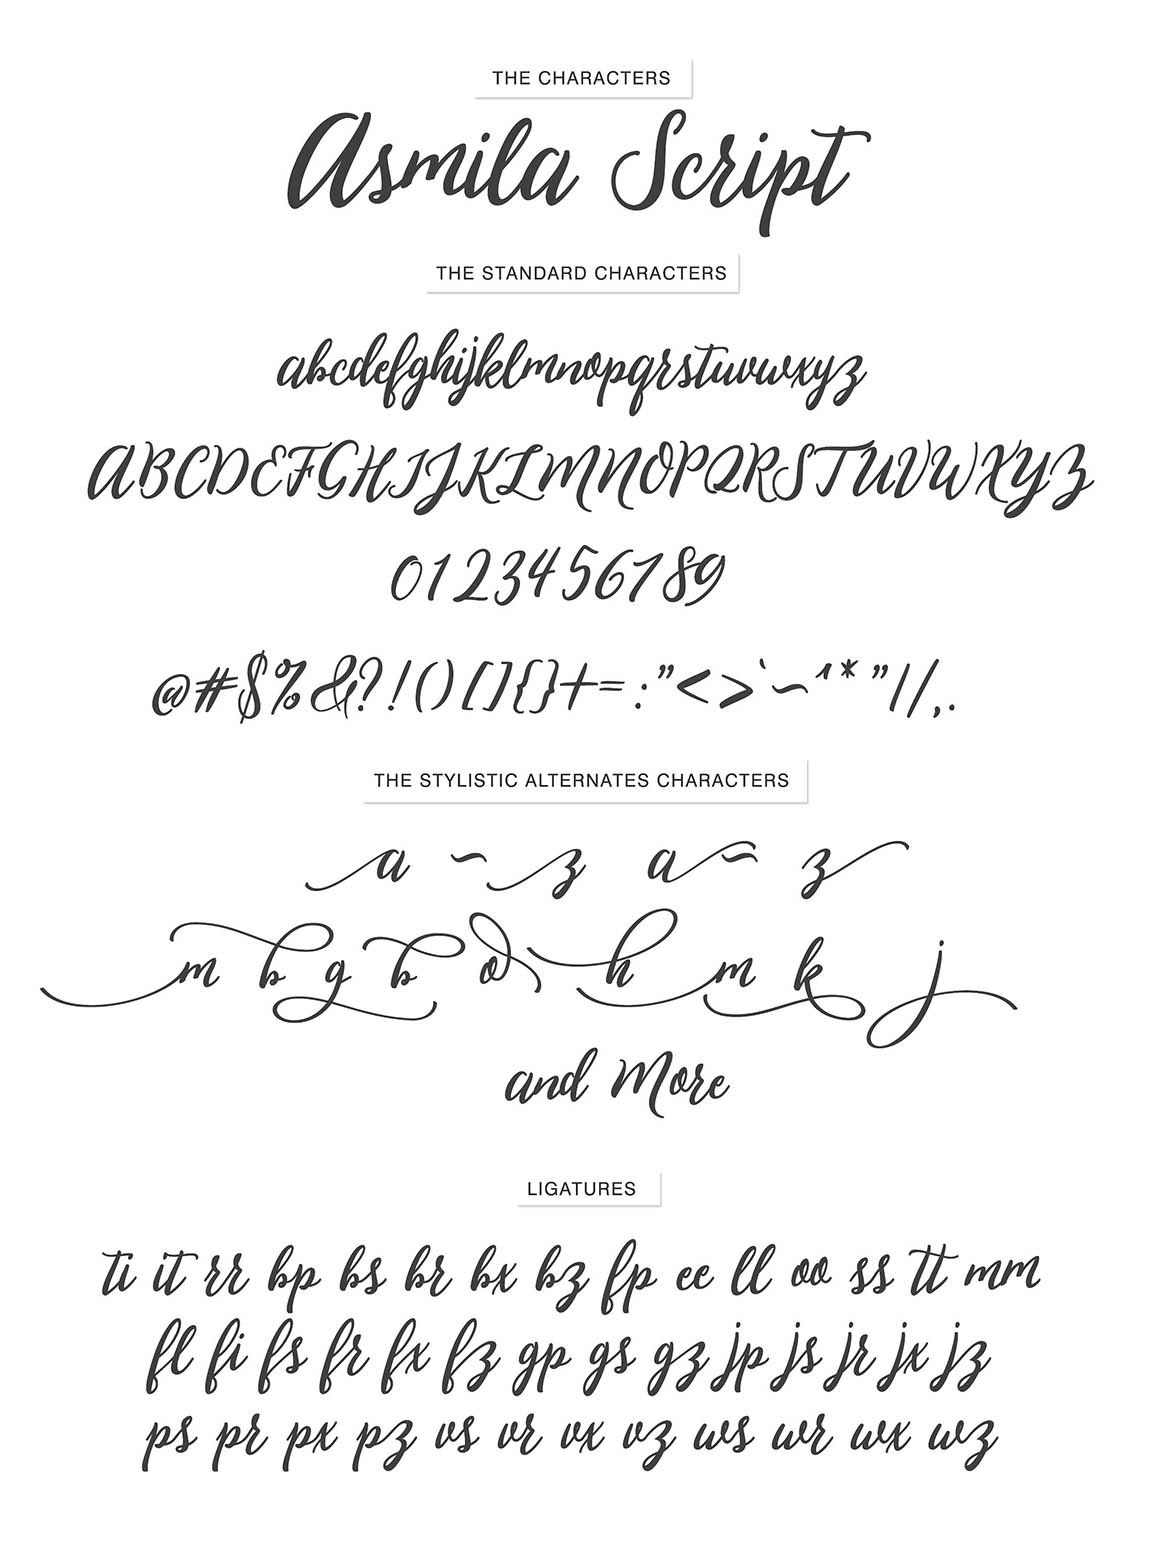 THE CHARACTERS
Asmila Script
THE STANDARD CHARACTERS
abcdefghijklmnopqrstuvwxyz
ABCDEFGHIJKLMNOPQRSTUVWXYZ
0123456789
@#$%&?!()[]{}+=:"<>`~^*"|/,.
THE STYLISTIC ALTERNATES CHARACTERS
a ~ z a ~ z
m b g b d h m k j
and More
LIGATURES
ti it rr bp bs br bx bz fp ee ll oo ss tt mm
fl fi fs fr fx fz gp gs gz jp js jr jx jz
ps pr px pz vs vr vx vz ws wr wx wz